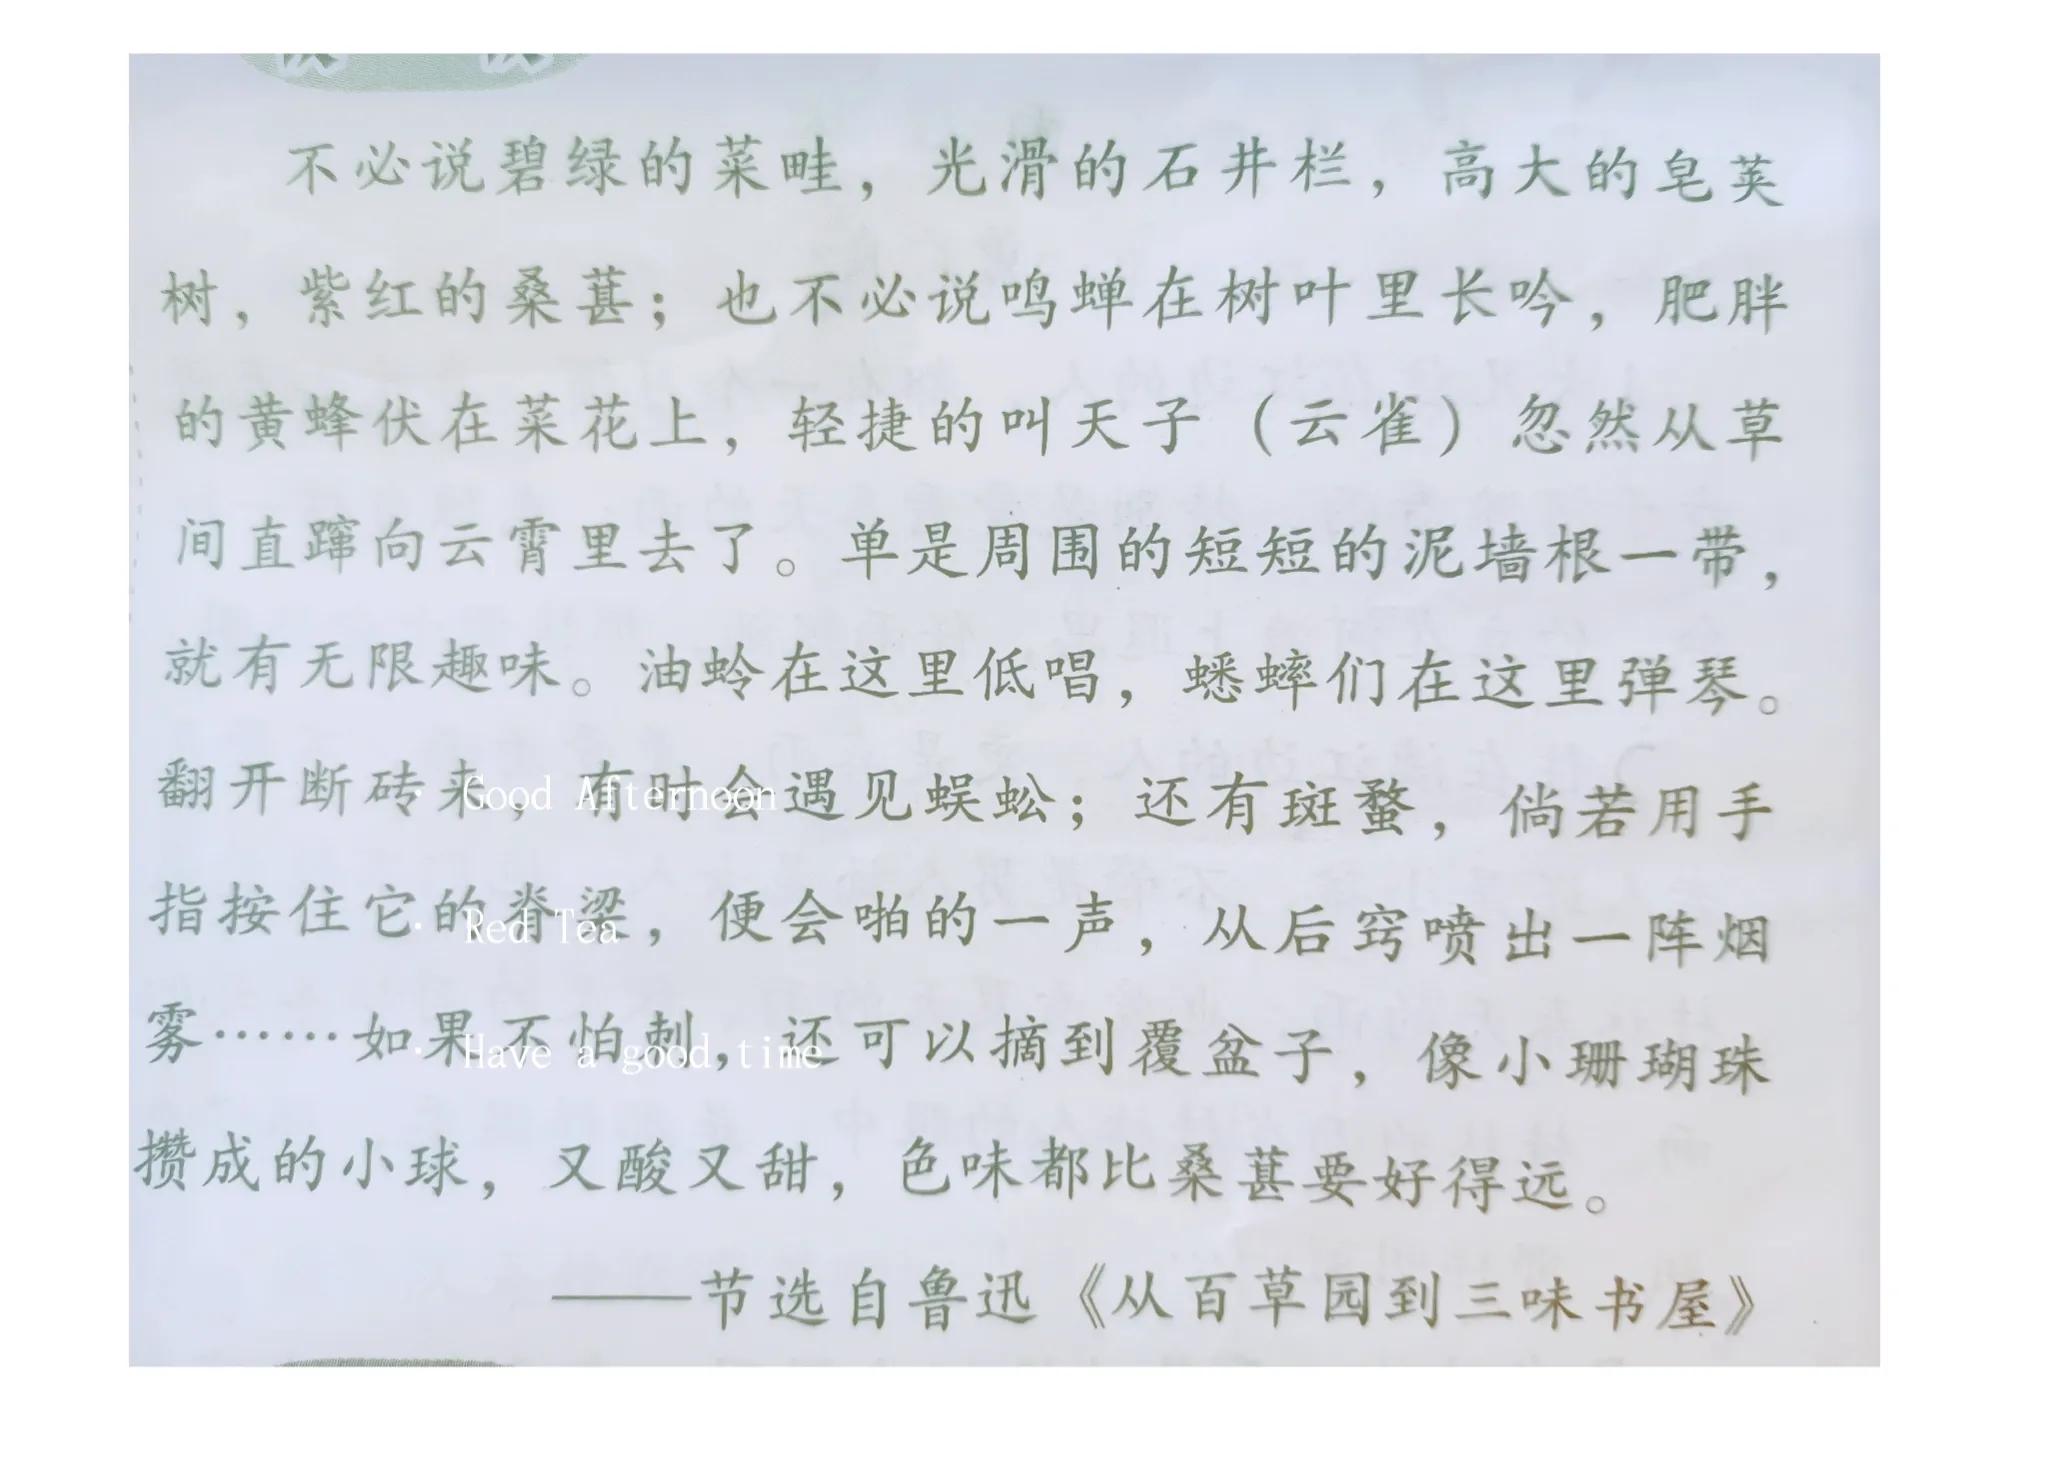 不必说碧绿的菜畦，光滑的石井栏，高大的皂荚
树，紫红的桑葚；也不必说鸣蝉在树叶里长吟，肥胖
的黄蜂伏在菜花上，轻捷的叫天子（云雀）忽然从草
间直蹿向云霄里去了。单是周围的短短的泥墙根一带，
就有无限趣味。油蛉在这里低唱，蟋蟀们在这里弹琴。
翻开断砖来，有时会遇见蜈蚣；还有斑蝥，倘若用手
· Good Afternoon
指按住它的脊梁，便会啪的一声，从后窍喷出一阵烟
· Red Tea
雾……如果不怕刺，还可以摘到覆盆子，像小珊瑚珠
· Have a good time
攒成的小球，又酸又甜，色味都比桑葚要好得远。
——节选自鲁迅《从百草园到三味书屋》